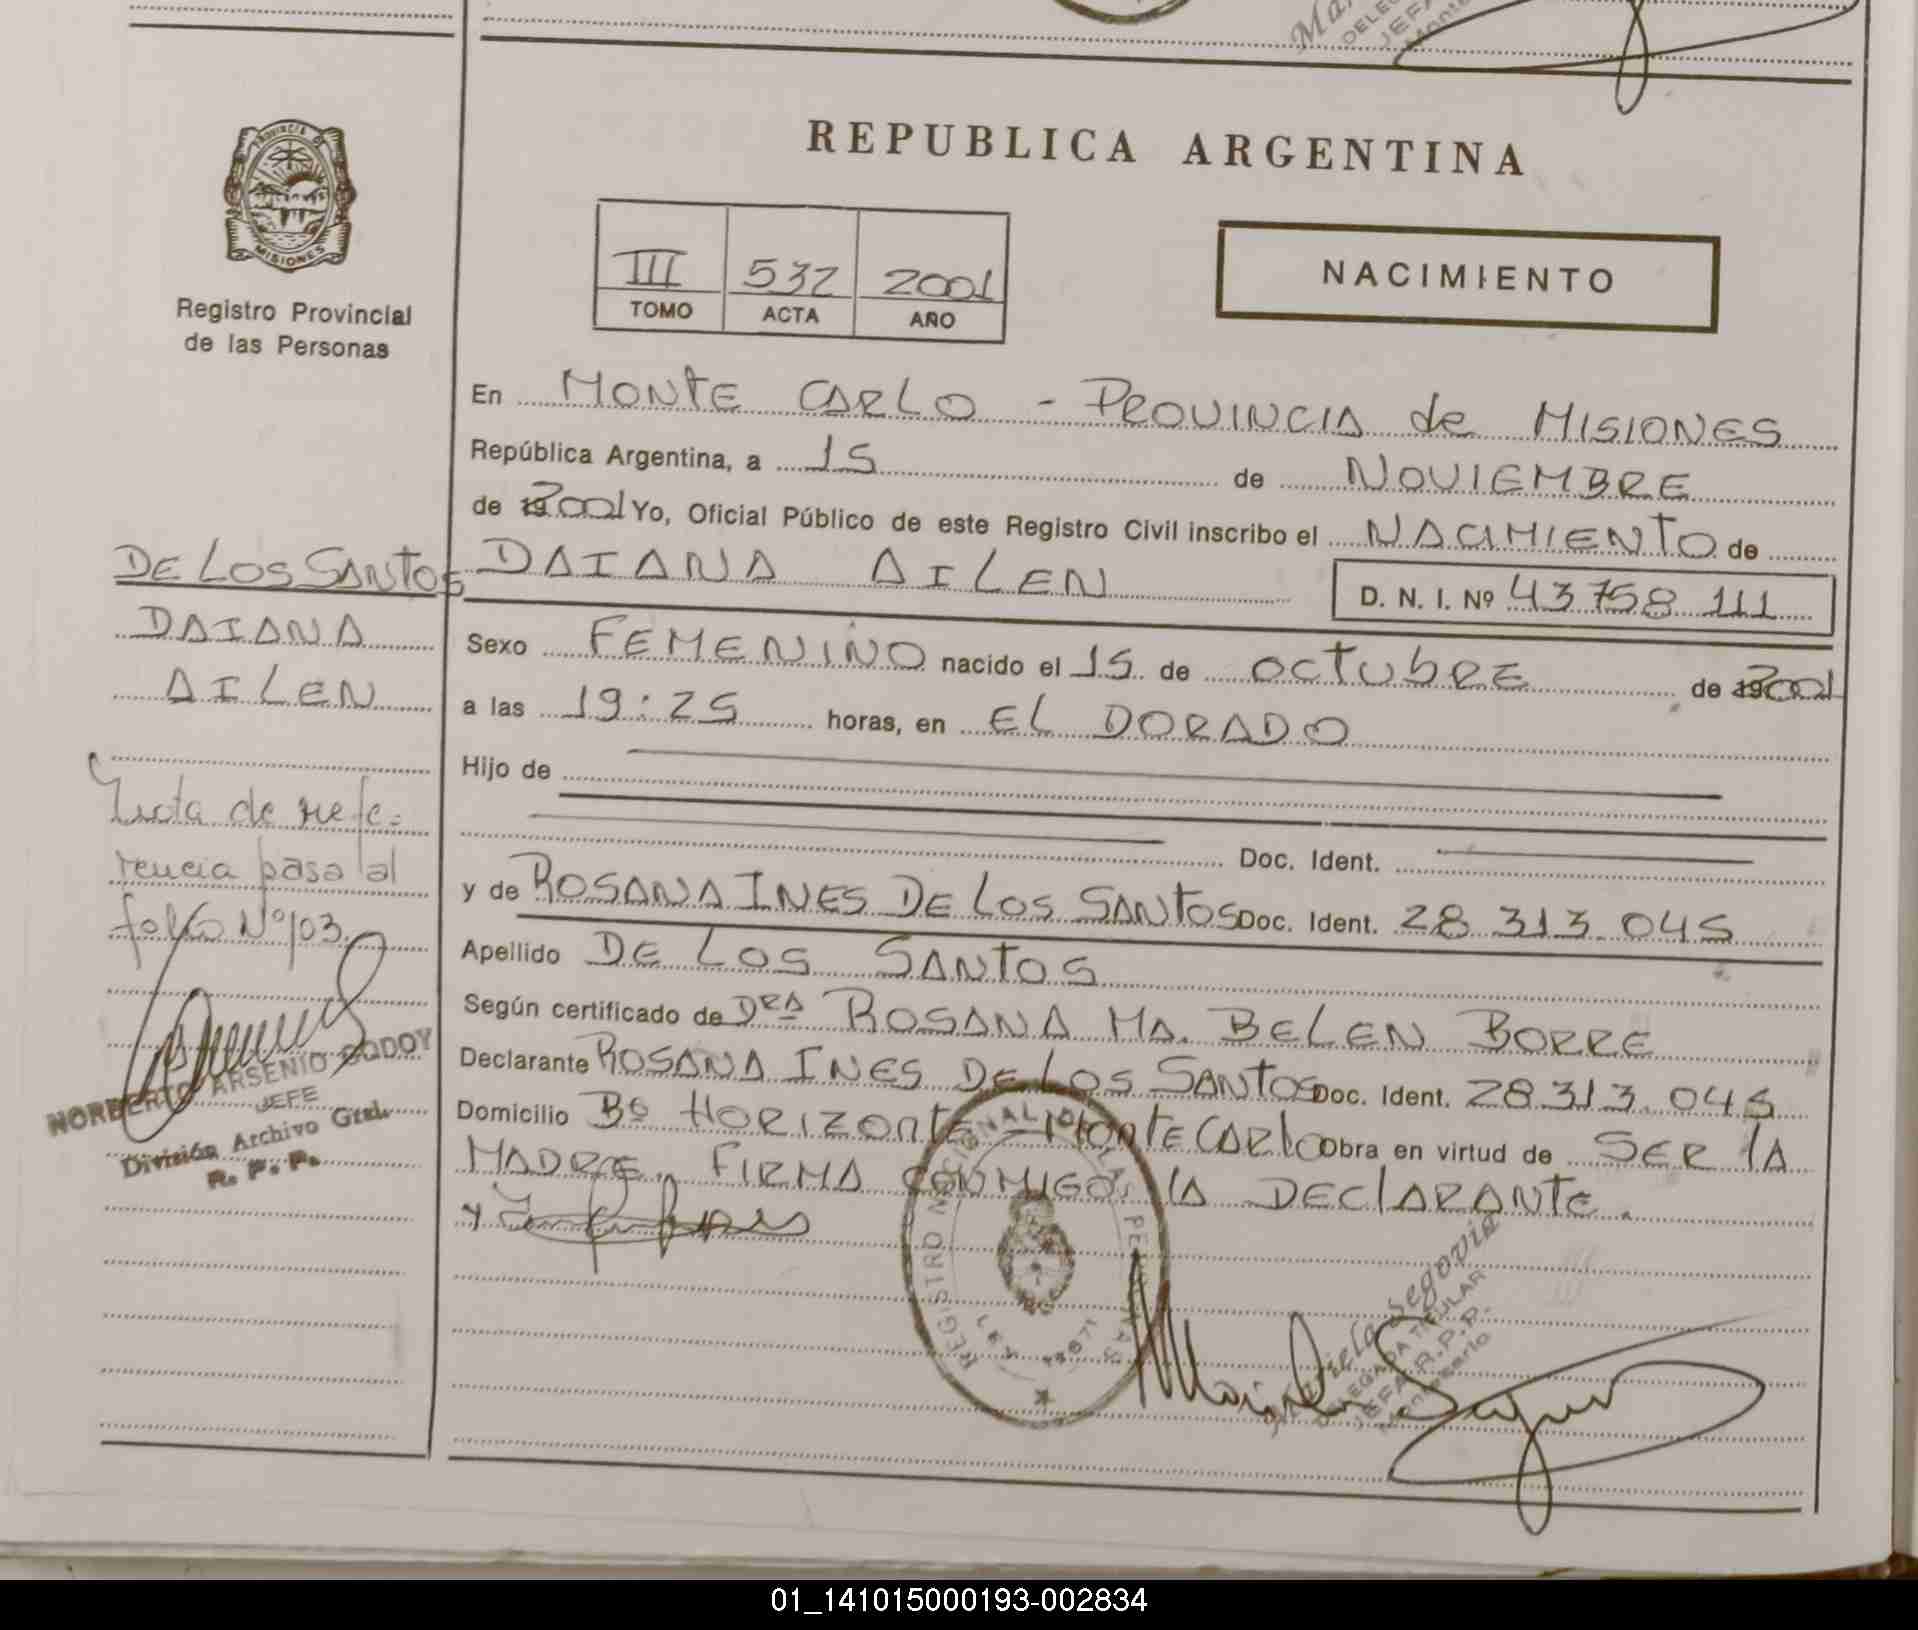 REPUBLICA ARGENTINA
PROVINCIA DE
MISIONES
Registro Provincial
de las Personas
III 532 2001
TOMO ACTA AÑO
NACIMIENTO
En MONTE CARLO - PROVINCIA de MISIONES
República Argentina, a 15 de NOVIEMBRE
de 2001 Yo, Oficial Público de este Registro Civil inscribo el NACIMIENTO de
DAIANA AILEN D. N. I. Nº 43 758 111
Sexo FEMENINO nacido el 15 de OCTUBRE de 2001
a las 19:25 horas, en EL DORADO
Hijo de
Doc. Ident.
y de ROSANA INES DE LOS SANTOS Doc. Ident. 28 313 045
Apellido DE LOS SANTOS
Según certificado de DRA ROSANA MA. BELEN BORRE
Declarante ROSANA INES DE LOS SANTOS Doc. Ident. 28 313. 045
Domicilio Bº HORIZONTE - MONTE CARLO Obra en virtud de SER LA
MADRE. FIRMA CONMIGO LA DECLARANTE.
DE LOS SANTOS
DAIANA
AILEN
Nota de refe-
rencia pasa al
folio Nº 103.
NORBERTO ARSENIO GODOY
JEFE
División Archivo Gral.
R. P. P.
REGISTRO NACIONAL DE LAS PERSONAS
Mariela Segovia
DELEGADA TITULAR
JEFA R.P.P.
Monte Carlo
01_141015000193-002834